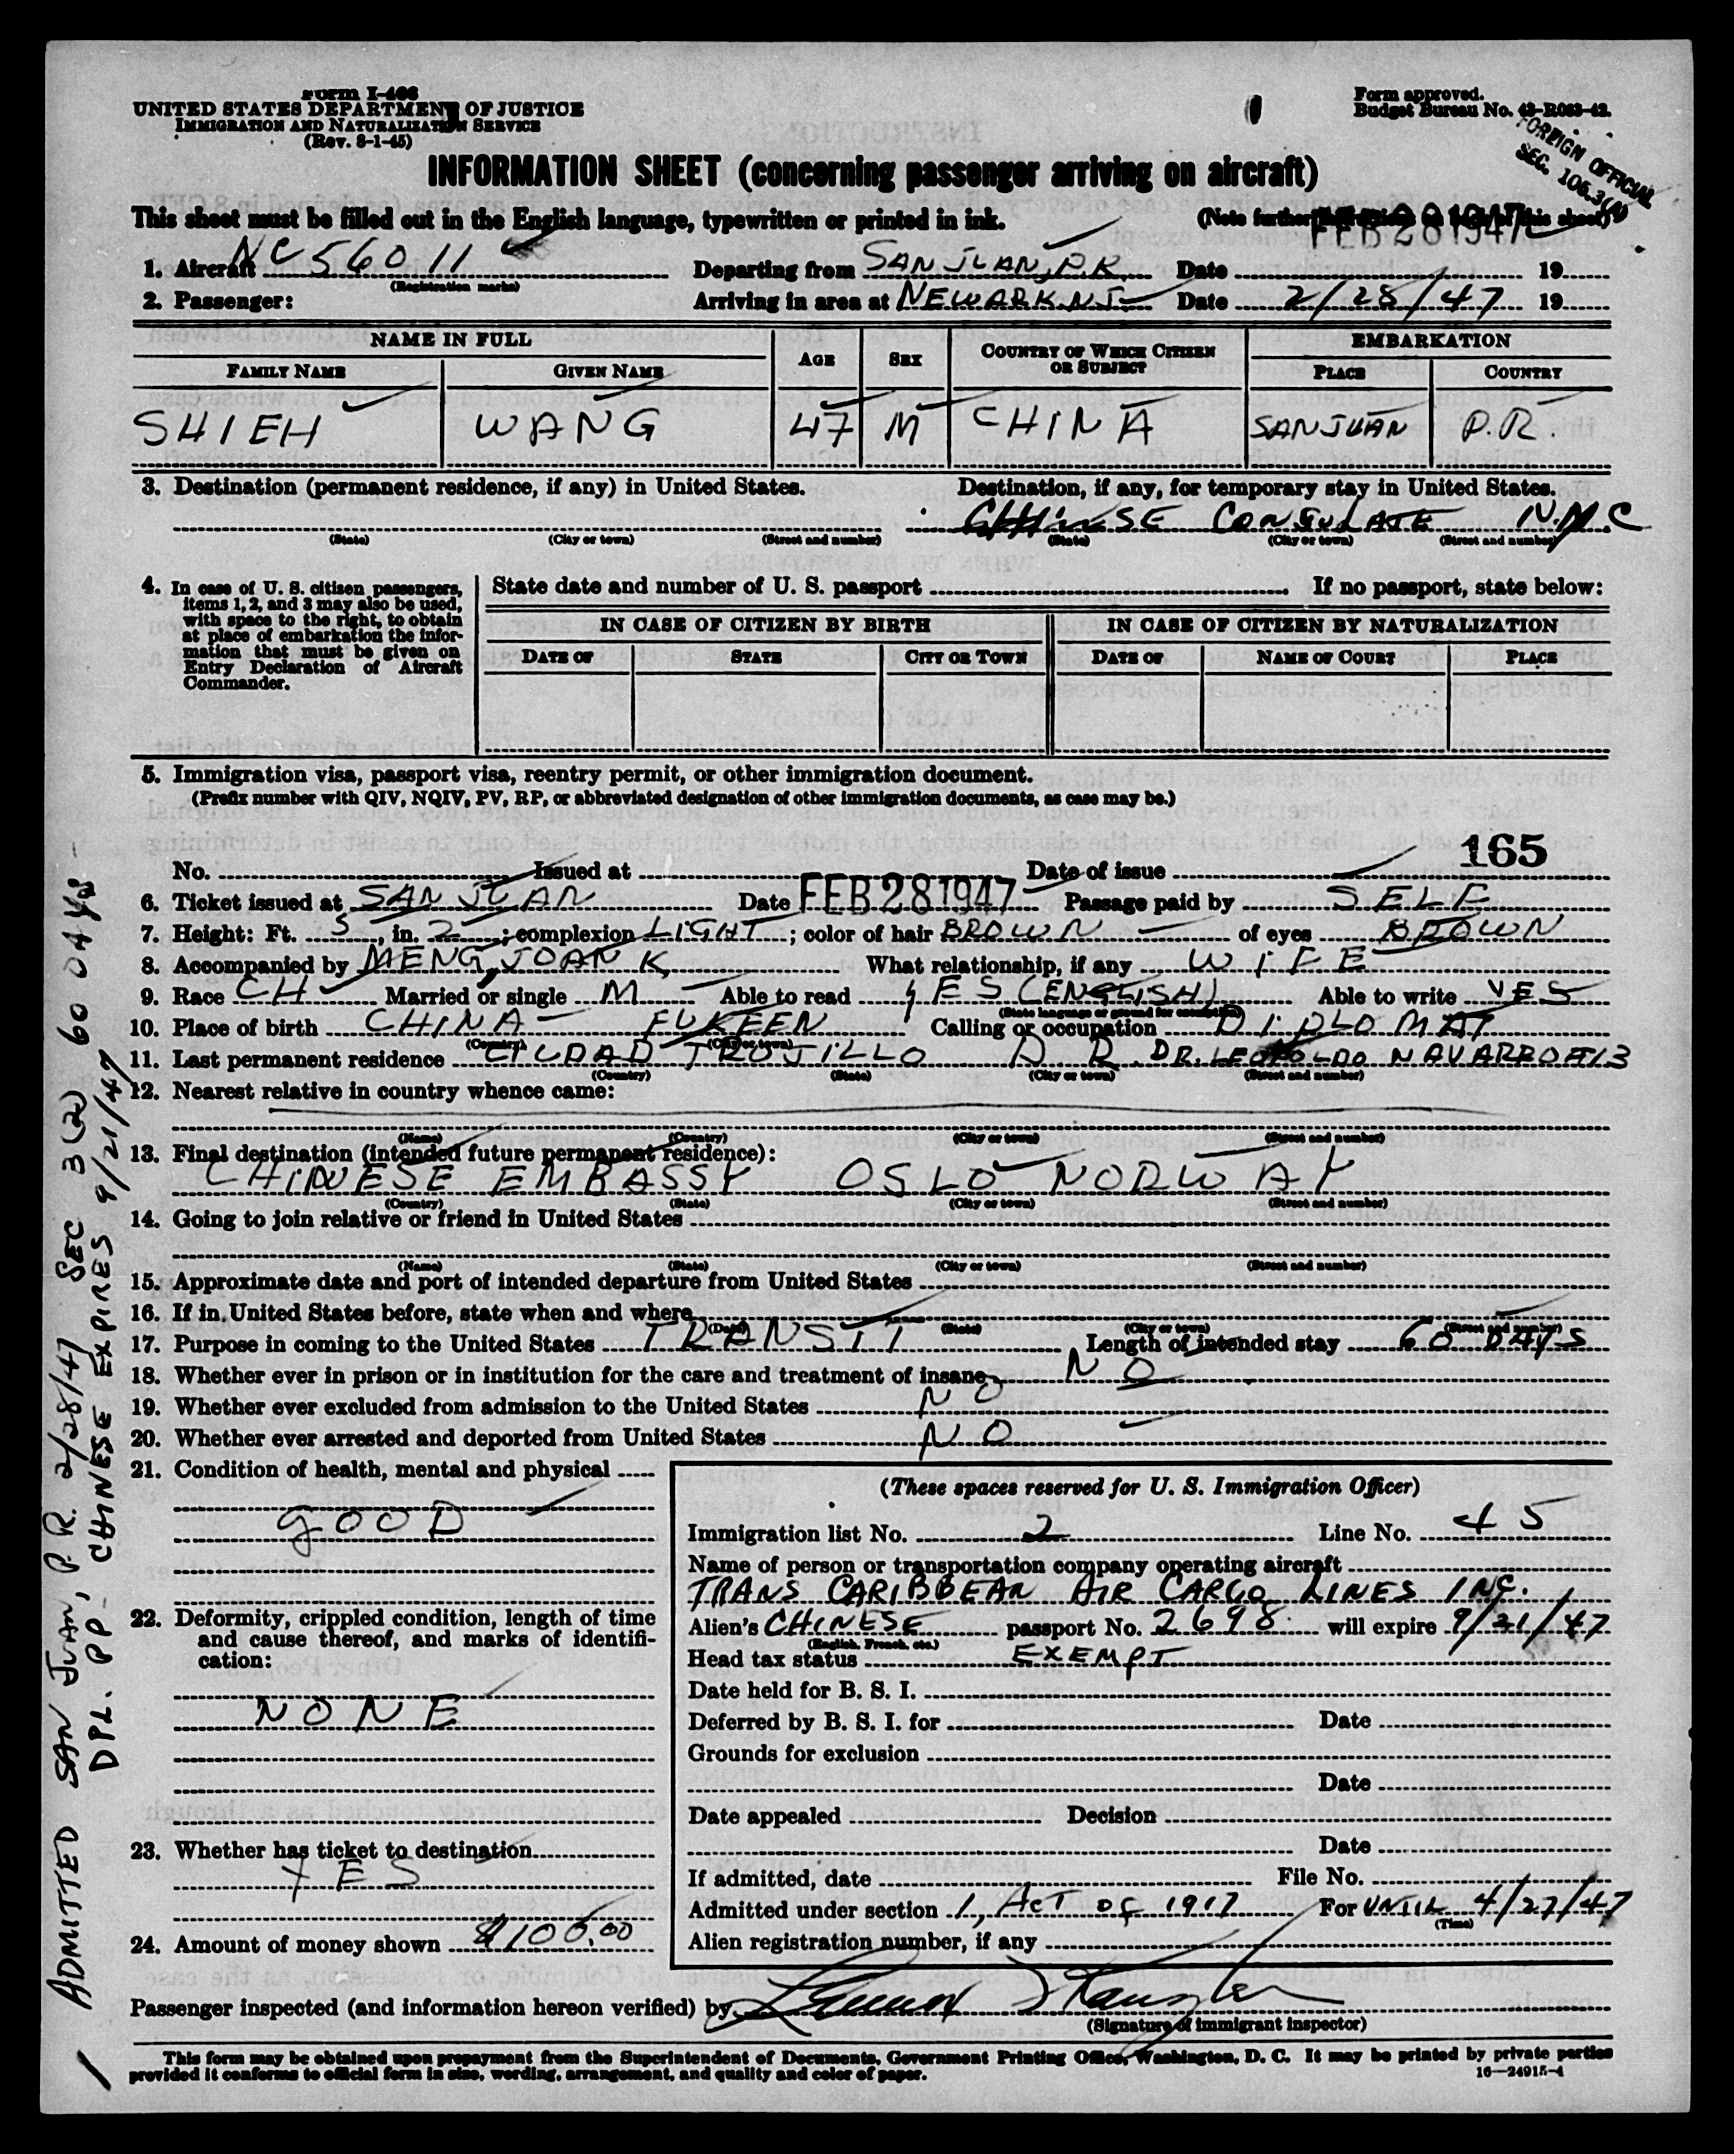 Form I-466
UNITED STATES DEPARTMENT OF JUSTICE
IMMIGRATION AND NATURALIZATION SERVICE
(Rev. 8-1-45)
Form approved.
Budget Bureau No. 43-R063-42.
FOREIGN OFFICIAL
SEC. 106.3
INFORMATION SHEET (concerning passenger arriving on aircraft)
This sheet must be filled out in the English language, typewritten or printed in ink. (Note further instructions on back of this sheet)
FEB 28 1947
1. Aircraft NC 56011 Departing from SAN JUAN, P.R. Date 19
(Registration marks)
2. Passenger: Arriving in area at NEWARK N.J. Date 2/28/47 19
NAME IN FULL AGE SEX COUNTRY OF WHICH CITIZEN OR SUBJECT EMBARKATION
FAMILY NAME GIVEN NAME PLACE COUNTRY
SHIEH WANG 47 M CHINA SAN JUAN P.R.
3. Destination (permanent residence, if any) in United States. Destination, if any, for temporary stay in United States.
CHINESE CONSULATE N.Y.C
(State) (City or town) (Street and number) (State) (City or town) (Street and number)
4. In case of U. S. citizen passengers, items 1, 2, and 3 may also be used, with space to the right, to obtain at place of embarkation the information that must be given on Entry Declaration of Aircraft Commander.
State date and number of U. S. passport If no passport, state below:
IN CASE OF CITIZEN BY BIRTH IN CASE OF CITIZEN BY NATURALIZATION
DATE OF STATE CITY OR TOWN DATE OF NAME OF COURT PLACE
5. Immigration visa, passport visa, reentry permit, or other immigration document.
(Prefix number with QIV, NQIV, PV, RP, or abbreviated designation of other immigration documents, as case may be.)
165
No. Issued at Date of issue
6. Ticket issued at SAN JUAN Date FEB 28 1947 Passage paid by SELF
7. Height: Ft. 5, in. 2; complexion LIGHT; color of hair BROWN of eyes BROWN
8. Accompanied by MENG, JOAN K, What relationship, if any WIFE
9. Race CH Married or single M Able to read YES (ENGLISH) Able to write YES
(State language or ground for exemption)
10. Place of birth CHINA FUKEEN Calling or occupation DIPLOMAT
(Country) (City or town)
11. Last permanent residence CIUDAD TRUJILLO D. R. DR. LEOPOLDO NAVARRO #13
(Country) (State) (City or town) (Street and number)
12. Nearest relative in country whence came:
(Name) (Country) (City or town) (Street and number)
13. Final destination (intended future permanent residence):
CHINESE EMBASSY OSLO NORWAY
(Country) (State) (City or town) (Street and number)
14. Going to join relative or friend in United States
(Name) (State) (City or town) (Street and number)
15. Approximate date and port of intended departure from United States
16. If in United States before, state when and where
(Date) (State) (City or town) (Street and number)
17. Purpose in coming to the United States TRANSIT Length of intended stay 60 DAYS
18. Whether ever in prison or in institution for the care and treatment of insane NO
19. Whether ever excluded from admission to the United States NO
20. Whether ever arrested and deported from United States NO
21. Condition of health, mental and physical
GOOD
22. Deformity, crippled condition, length of time and cause thereof, and marks of identification:
NONE
23. Whether has ticket to destination
YES
24. Amount of money shown $100.00
(These spaces reserved for U. S. Immigration Officer)
Immigration list No. 2 Line No. 45
Name of person or transportation company operating aircraft
TRANS CARIBBEAN AIR CARGO LINES INC.
Alien's CHINESE passport No. 2698 will expire 9/21/47
(English, French, etc.)
Head tax status EXEMPT
Date held for B. S. I.
Deferred by B. S. I. for Date
Grounds for exclusion
Date
Date appealed Decision
Date
If admitted, date File No.
Admitted under section 1, ACT OF 1917 For UNTIL 4/27/47
(Time)
Alien registration number, if any
Passenger inspected (and information hereon verified) by
(Signature of immigrant inspector)
This form may be obtained upon prepayment from the Superintendent of Documents, Government Printing Office, Washington, D. C. It may be printed by private parties
provided it conforms to official form in size, wording, arrangement, and quality and color of paper. 16—24915-4
ADMITTED SAN JUAN, P R. 2/28/47 SEC 3(2) 60 DAYS -
DPL. PP- CHINESE EXPIRES 9/21/47